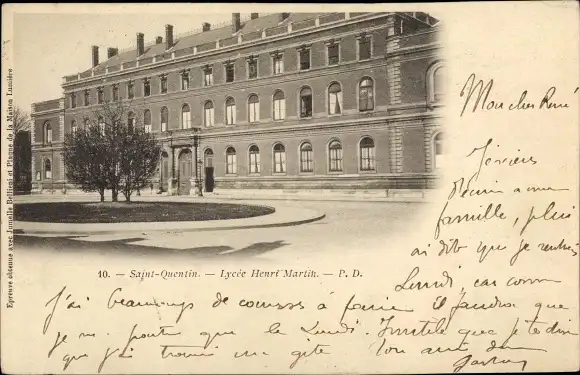 Epreuve obtenue avec Jumelle Bellieni et Plaque de la Maison Lumière
10. — Saint-Quentin. — Lycée Henri Martin. — P. D.
Mon cher René
Je viens
ma
famille, plui
ai dit que je rentrais
Lundi, car comme
J'ai beaucoup de courses à faire il faudra que
je ne parte que le Lundi. Inutile que je te dise
que j'ai trouvé un gite Ton ami